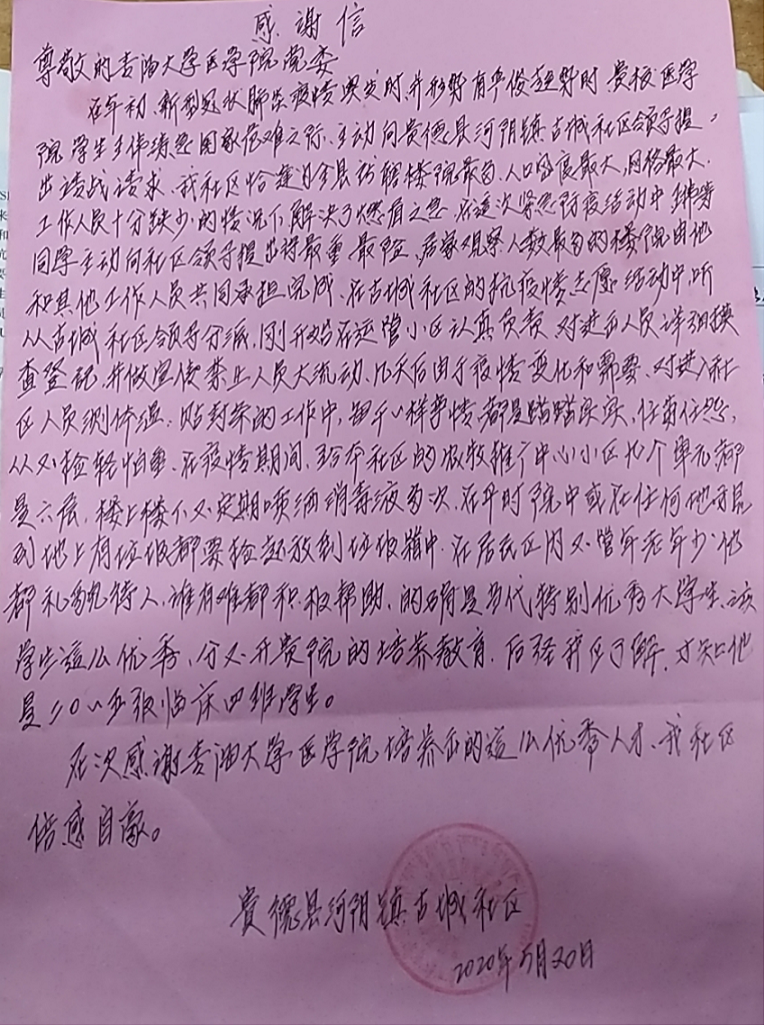 感谢信
尊敬的青海大学医学院党委
在年初,新型冠状肺炎疫情突发时,并形势有严俊趋势时,贵校医学
院学生王伟琦思国家危难之际,主动向贵德县河阴镇古城社区领导提
出请战请求,我社区恰是为全县所辖楼院最多,人口密度最大,网格最大,
工作人员十分缺少的情况下,解决了燃眉之急,在这次紧急防疫活动中王伟琦
同学主动向社区领导提出将最重、最险,居家观察人数最多的楼院由他
和其他工作人员共同承担完成,在古城社区的抗疫情志愿活动中,听
从古城社区领导分派,刚开始在运管小区认真负责,对进出人员详细摸
查登记,并做宣传禁止人员大流动,几天后由于疫情变化和需要,对进入社
区人员测体温,贴封条的工作中,每干一样事情都是踏踏实实,任劳任怨,
从不捡轻怕重,在疫情期间,给本社区的农牧推广中心小区 个单元都
是六层,楼上楼下不定期喷洒消毒液多次,在平时院中或在任何地方见
到地上有垃圾都要捡起放到垃圾箱中,在居民区内不管年老年少他
都礼貌待人,谁有难都积极帮助,的确是当代特别优秀大学生,该
学生这么优秀,分不开贵院的培养教育,后经我区了解,才知他
是二〇一五级临床四班学生。
在次感谢青海大学医学院培养出的这么优秀人才,我社区
倍感自豪。
贵德县河阴镇古城社区
2020年5月20日